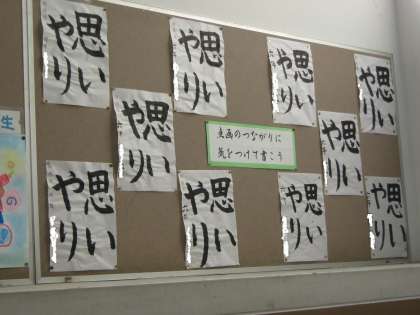 思い
やり
思い
やり
思い
やり
思い
やり
思い
やり
点画のつながりに
気をつけて書こう
思い
やり
思い
やり
思い
やり
思い
やり
思い
やり
生
の